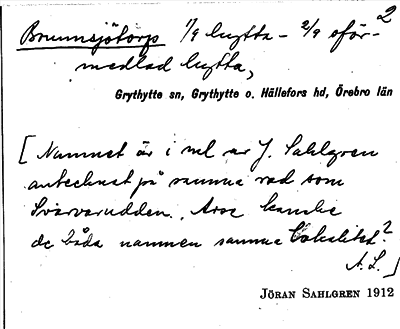 Brunnsjötorp 1/9 hytta – 2/9 oför-2
medlad hytta,
Grythytte sn, Grythytte o. Hällefors hd, Örebro län
[Namnet är i ml av J. Sahlgren
antecknat på samma rad som
Svarvarudden. Avse kanske
de båda namnen samma lokalitet?
A. L.]
JÖRAN SAHLGREN 1912